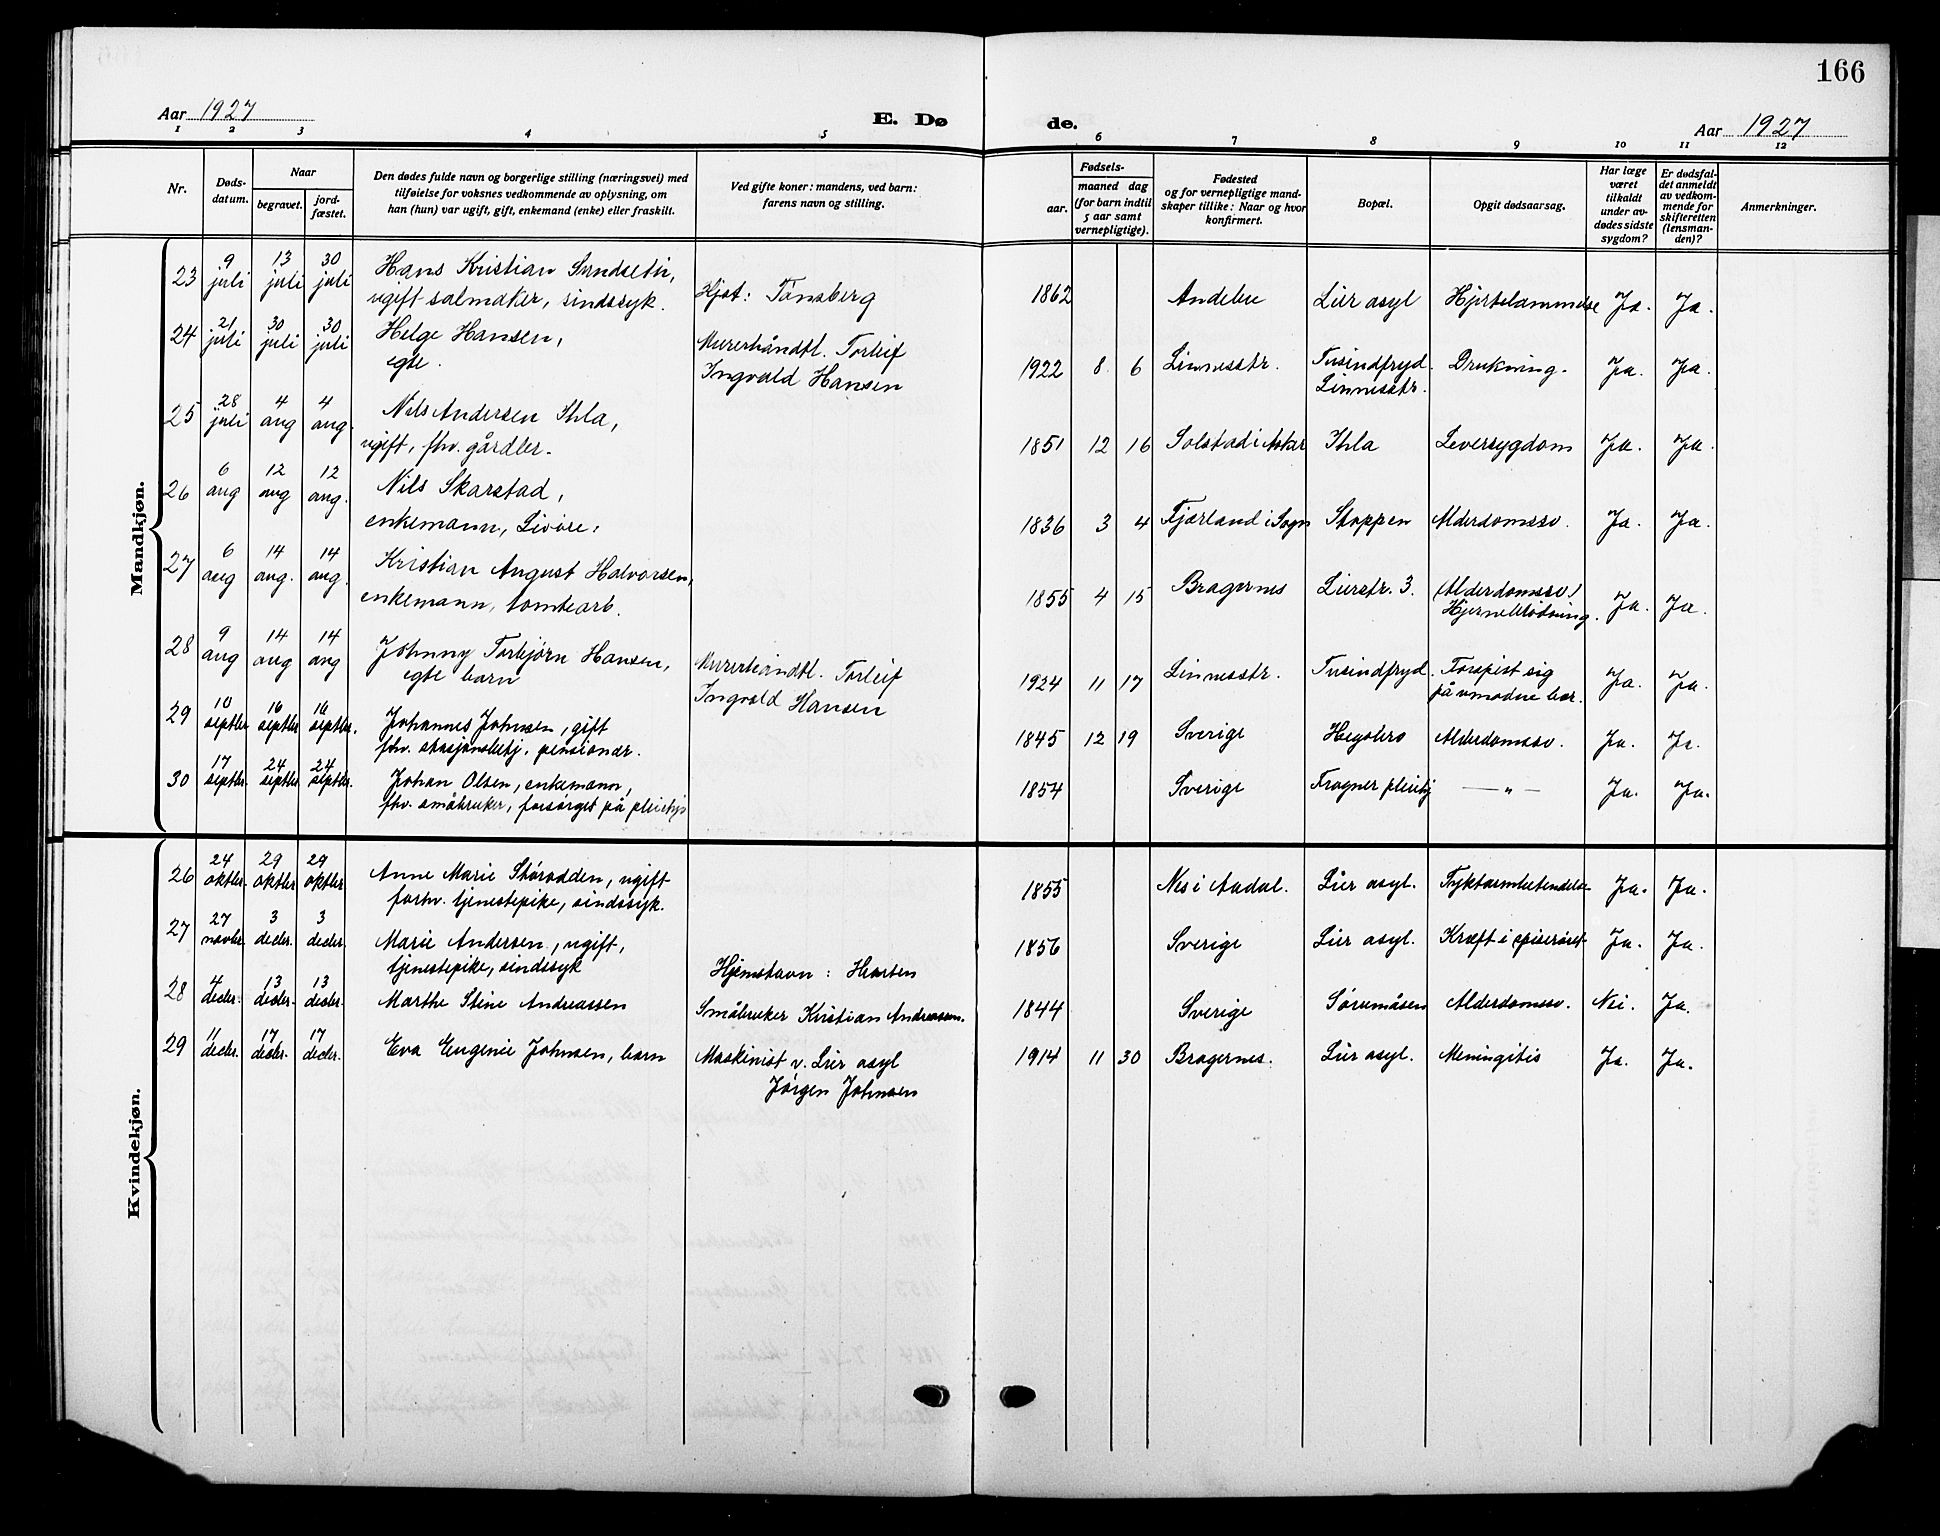 166
Aar 1927
E. Dø
de.
Aar 1927
1 2 3 4 5 6 7 8 9 10 11 12
Nr.
Døds-
datum.
Naar
begravet.
jord-
fæstet.
Den dødes fulde navn og borgerlige stilling (næringsvei) med
tilføielse for voksnes vedkommende av oplysning, om
han (hun) var ugift, gift, enkemand (enke) eller fraskilt.
Ved gifte koner: mandens, ved barn:
farens navn og stilling.
Fødsels-
aar.
maaned dag
(for barn indtil
5 aar samt
vernepligtige).
Fødested
og for vernepligtige mand-
skaper tillike: Naar og hvor
konfirmert.
Bopæl.
Opgit dødsaarsag.
Har læge
været
tilkaldt
under av-
dødes sidste
sygdom?
Er dødsfal-
det anmeldt
av vedkom-
mende for
skifteretten
(lensman-
den)?
Anmerkninger.
Mandkjøn.
23 9 juli 13 juli 30 juli Hans Kristian Sundseth,
ugift salmaker, sindssyk. Hjst: Tønsberg 1862 Andebu Lier asyl Hjertelammelse Ja. Ja.
24 21 juli 30 juli 30 juli Helge Hansen,
egte. Murerhåndtl. Torleif
Ingvald Hansen 1922 8 6 Linnesstr. Tusindfryd.
Linnesstr. Drukning. Ja. Ja.
25 28 juli 4 aug 4 aug. Nils Andersen Ihla,
ugift, fhv. gårdbr. 1851 12 16 Solstad i Asker Ihla Leversygdom Ja. Ja.
26 6 aug 12 aug 12 aug. Nils Skarstad,
enkemann, 1836 3 4 Fjærland i Sogn Stoppen Alderdomssv. Ja. Ja.
27 6 aug 14 aug. 14 aug. Kristian August Halvorsen,
enkemann, tomtearb. 1855 4 15 Bragernes Lierstr. 3. (Alderdomssv.)
Hjerneblødning. Ja. Ja.
28 9 aug 14 aug 14 aug Johnny Torbjørn Hansen,
egte barn Murerhåndtl. Torleif
Ingvald Hansen 1924 11 17 Linnesstr. Tusindfryd. Forspist sig
på umodne bær. Ja. Ja.
29 10 septbr 16 septbr 16 septbr. Johannes Johnsen, gift
fhv. stasjonsbetj. pensionær. 1845 12 19 Sverige Hegsbro Alderdomssv. Ja. Ja.
30 17 septbr. 24 septbr. 24 septbr. Johan Olsen, enkemann,
fhv. småbruker, forsørget på pleiehj. 1854 Sverige Frogner pleiehj — " — Ja. Ja.
Kvindekjøn.
26 24 oktbr. 29 oktbr 29 oktbr Anne Marie Størodden, ugift
forhv. tjenestepike, sindssyk. 1855 Nes i Aadal. Lier asyl. Tyktarmbetendelse Ja. Ja.
27 27 novbr. 3 decbr. 3 decbr. Marie Andersen, ugift,
tjenestepike, sindssyk Hjemstavn: Hurdal 1856 Sverige Lier asyl. Kræft i spiserøret Ja. Ja.
28 4 decbr. 13 decbr. 13 decbr. Marthe Stine Andreassen Småbruker Kristian Andreassen. 1844 Sverige Sørumåsen Alderdomssv. Nei. Ja.
29 11 decbr. 17 decbr. 17 decbr. Eva Eugenie Johnsen, barn Maskinist v. Lier asyl
Jørgen Johnsen 1914 11 30 Bragernes. Lier asyl. Meningitis Ja. Ja.